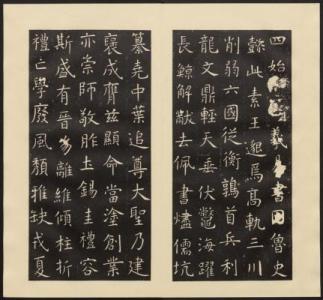 四始羲易書因魯史
懿此素王邈焉高軌三川
削弱六國從衡鶉首兵利
龍文鼎輕天垂伏鼈海躍
長鯨解黻去佩書燼儒坑
纂堯中葉追尊大聖乃建
褒成膺茲顯命當塗創業
亦崇師敬胙土錫圭禮容
斯盛有晉離維傾柱折
禮亡學廢風頹雅缺戎夏